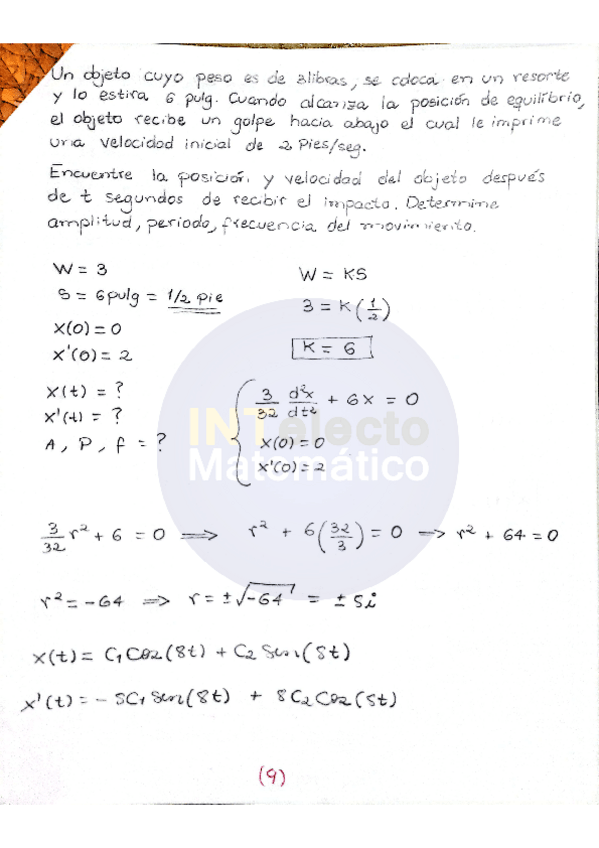 Un objeto cuyo peso es de 3libras, se coloca en un resorte
y lo estira 6 pulg. Cuando alcanza la posición de equilibrio,
el objeto recibe un golpe hacia abajo el cual le imprime
una velocidad inicial de 2 Pies/seg.
Encuentre la posición y velocidad del objeto después
de t segundos de recibir el impacto. Determine
amplitud, periodo, frecuencia del movimiento.
W = 3
W = KS
S = 6pulg = 1/2 pie
3 = K(1/2)
X(0) = 0
X'(0) = 2
K = 6
X(t) = ?
X'(t) = ?
A, P, f = ?
3/32 d²x/dt² + 6x = 0
X(0) = 0
X'(0) = 2
INTelecto
Matemático
3/32 r² + 6 = 0 ⟹ r² + 6(32/3) = 0 → r² + 64 = 0
r² = -64 ⟹ r = ±√-64 = ± 8i
X(t) = C₁ Cos(8t) + C₂ Sen(8t)
X'(t) = - 8C₁ Sen(8t) + 8C₂ Cos(8t)
(9)